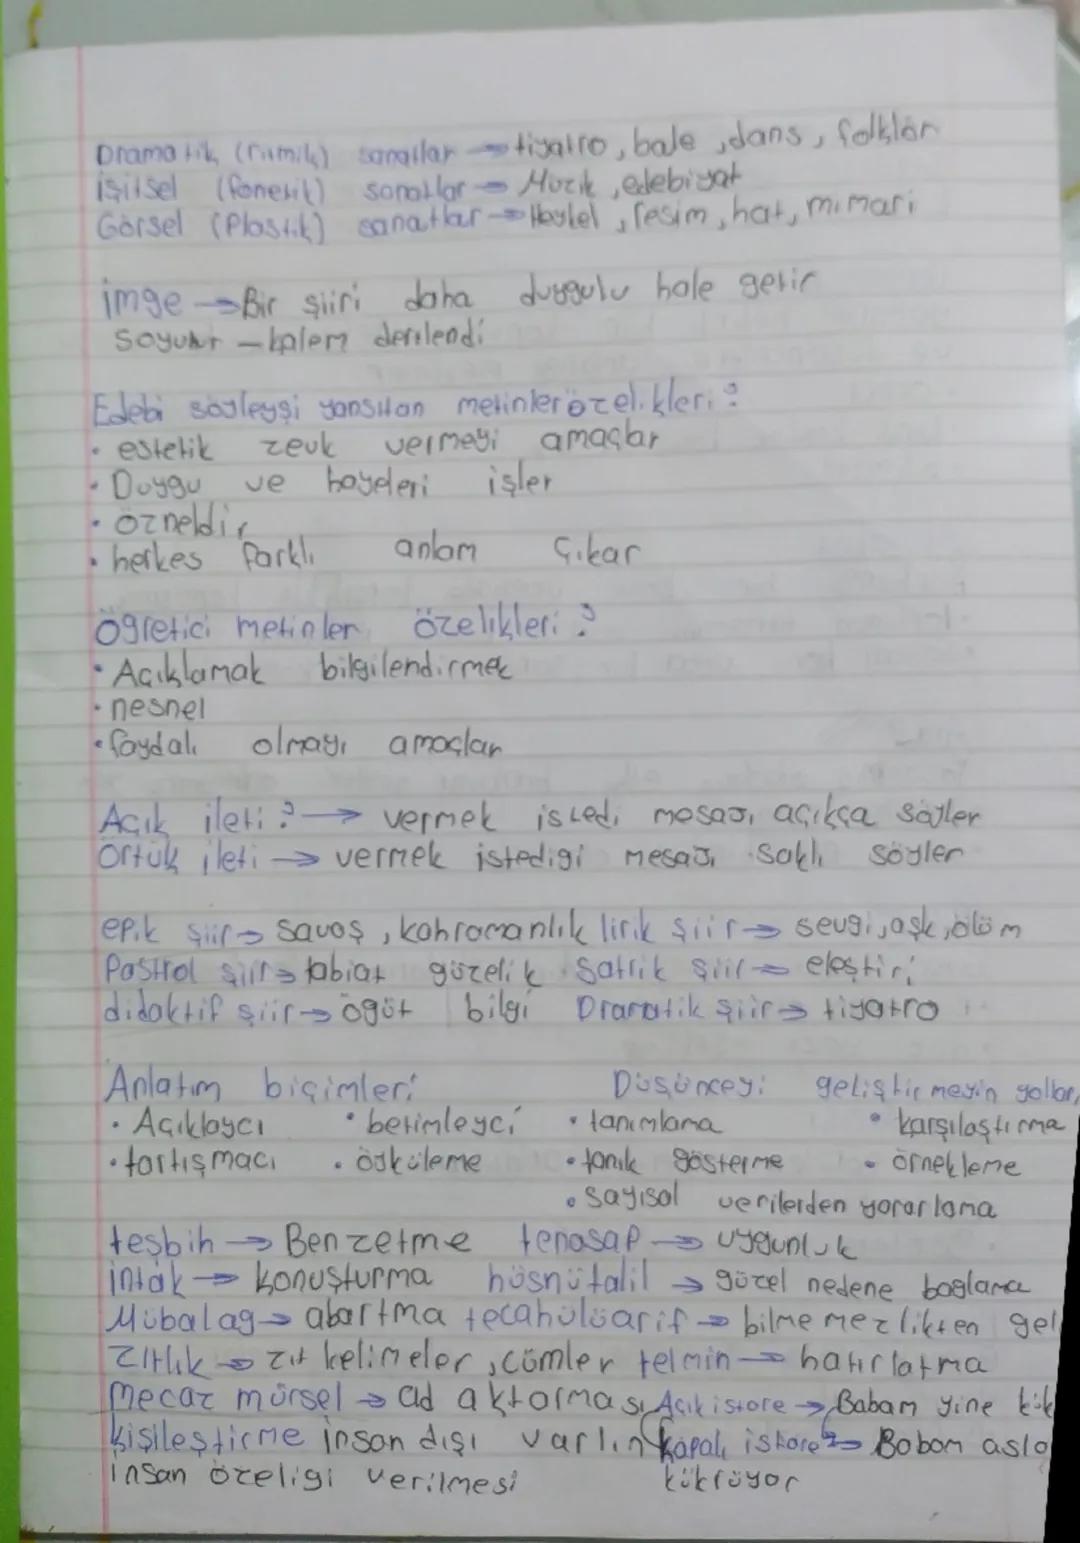 Dramatik (ritmik) sanatlar → tiyatro, bale, dans, folklör
işitsel (fonetik) sanatlar → Müzik, edebiyat
Görsel (Plastik) sanatlar → Heykel, resim, hat, mimari
imge → Bir şiiri daha duygulu hale getir
soyut – kalem derilendi
Edebi söyleyşi yansıtan metinler özelikleri?
• estetik zevk vermeyi amaçlar
• Duygu ve hayeleri işler
• özneldir
• herkes farklı anlam çıkar
Ögretici metinler özelikleri?
• Açıklamak bilgilendirmek
• nesnel
• faydalı olmayı amaçlar
Açık ileti? → vermek istedi mesajı açıkça söyler
Örtük ileti → vermek istedigi mesajı saklı söyler
epik şiir → savaş, kahramanlık lirik şiir → sevgi, aşk, ölüm
Pastrol şiir → tabiat güzelik Satrik şiir → eleştiri
didaktif şiir → ögüt bilgi Dramatik şiir → tiyatro
Anlatım biçimleri Düşünceyi geliştirmeyin yolları
• Açıklaycı • betimleyci • tanımlama • karşılaştırma
• tartışmacı • öyküleme • tanık gösterme • örnekleme
• sayısal verilerden yorarlama
teşbih → Benzetme tenasap → uygunluk
intak → konuşturma hüsnütalil → güzel nedene baglama
Mübalag → abartma tecahülüarif → bilmemezlikten gel
Zıtlık → zıt kelimeler, cümler telmin → hatırlatma
Mecaz mürsel → ad aktarması Açık istare → Babam yine kük
kişileştirme insan dışı varlın kapalı istare → Babam asla
insan özeligi verilmesi kükrüyor